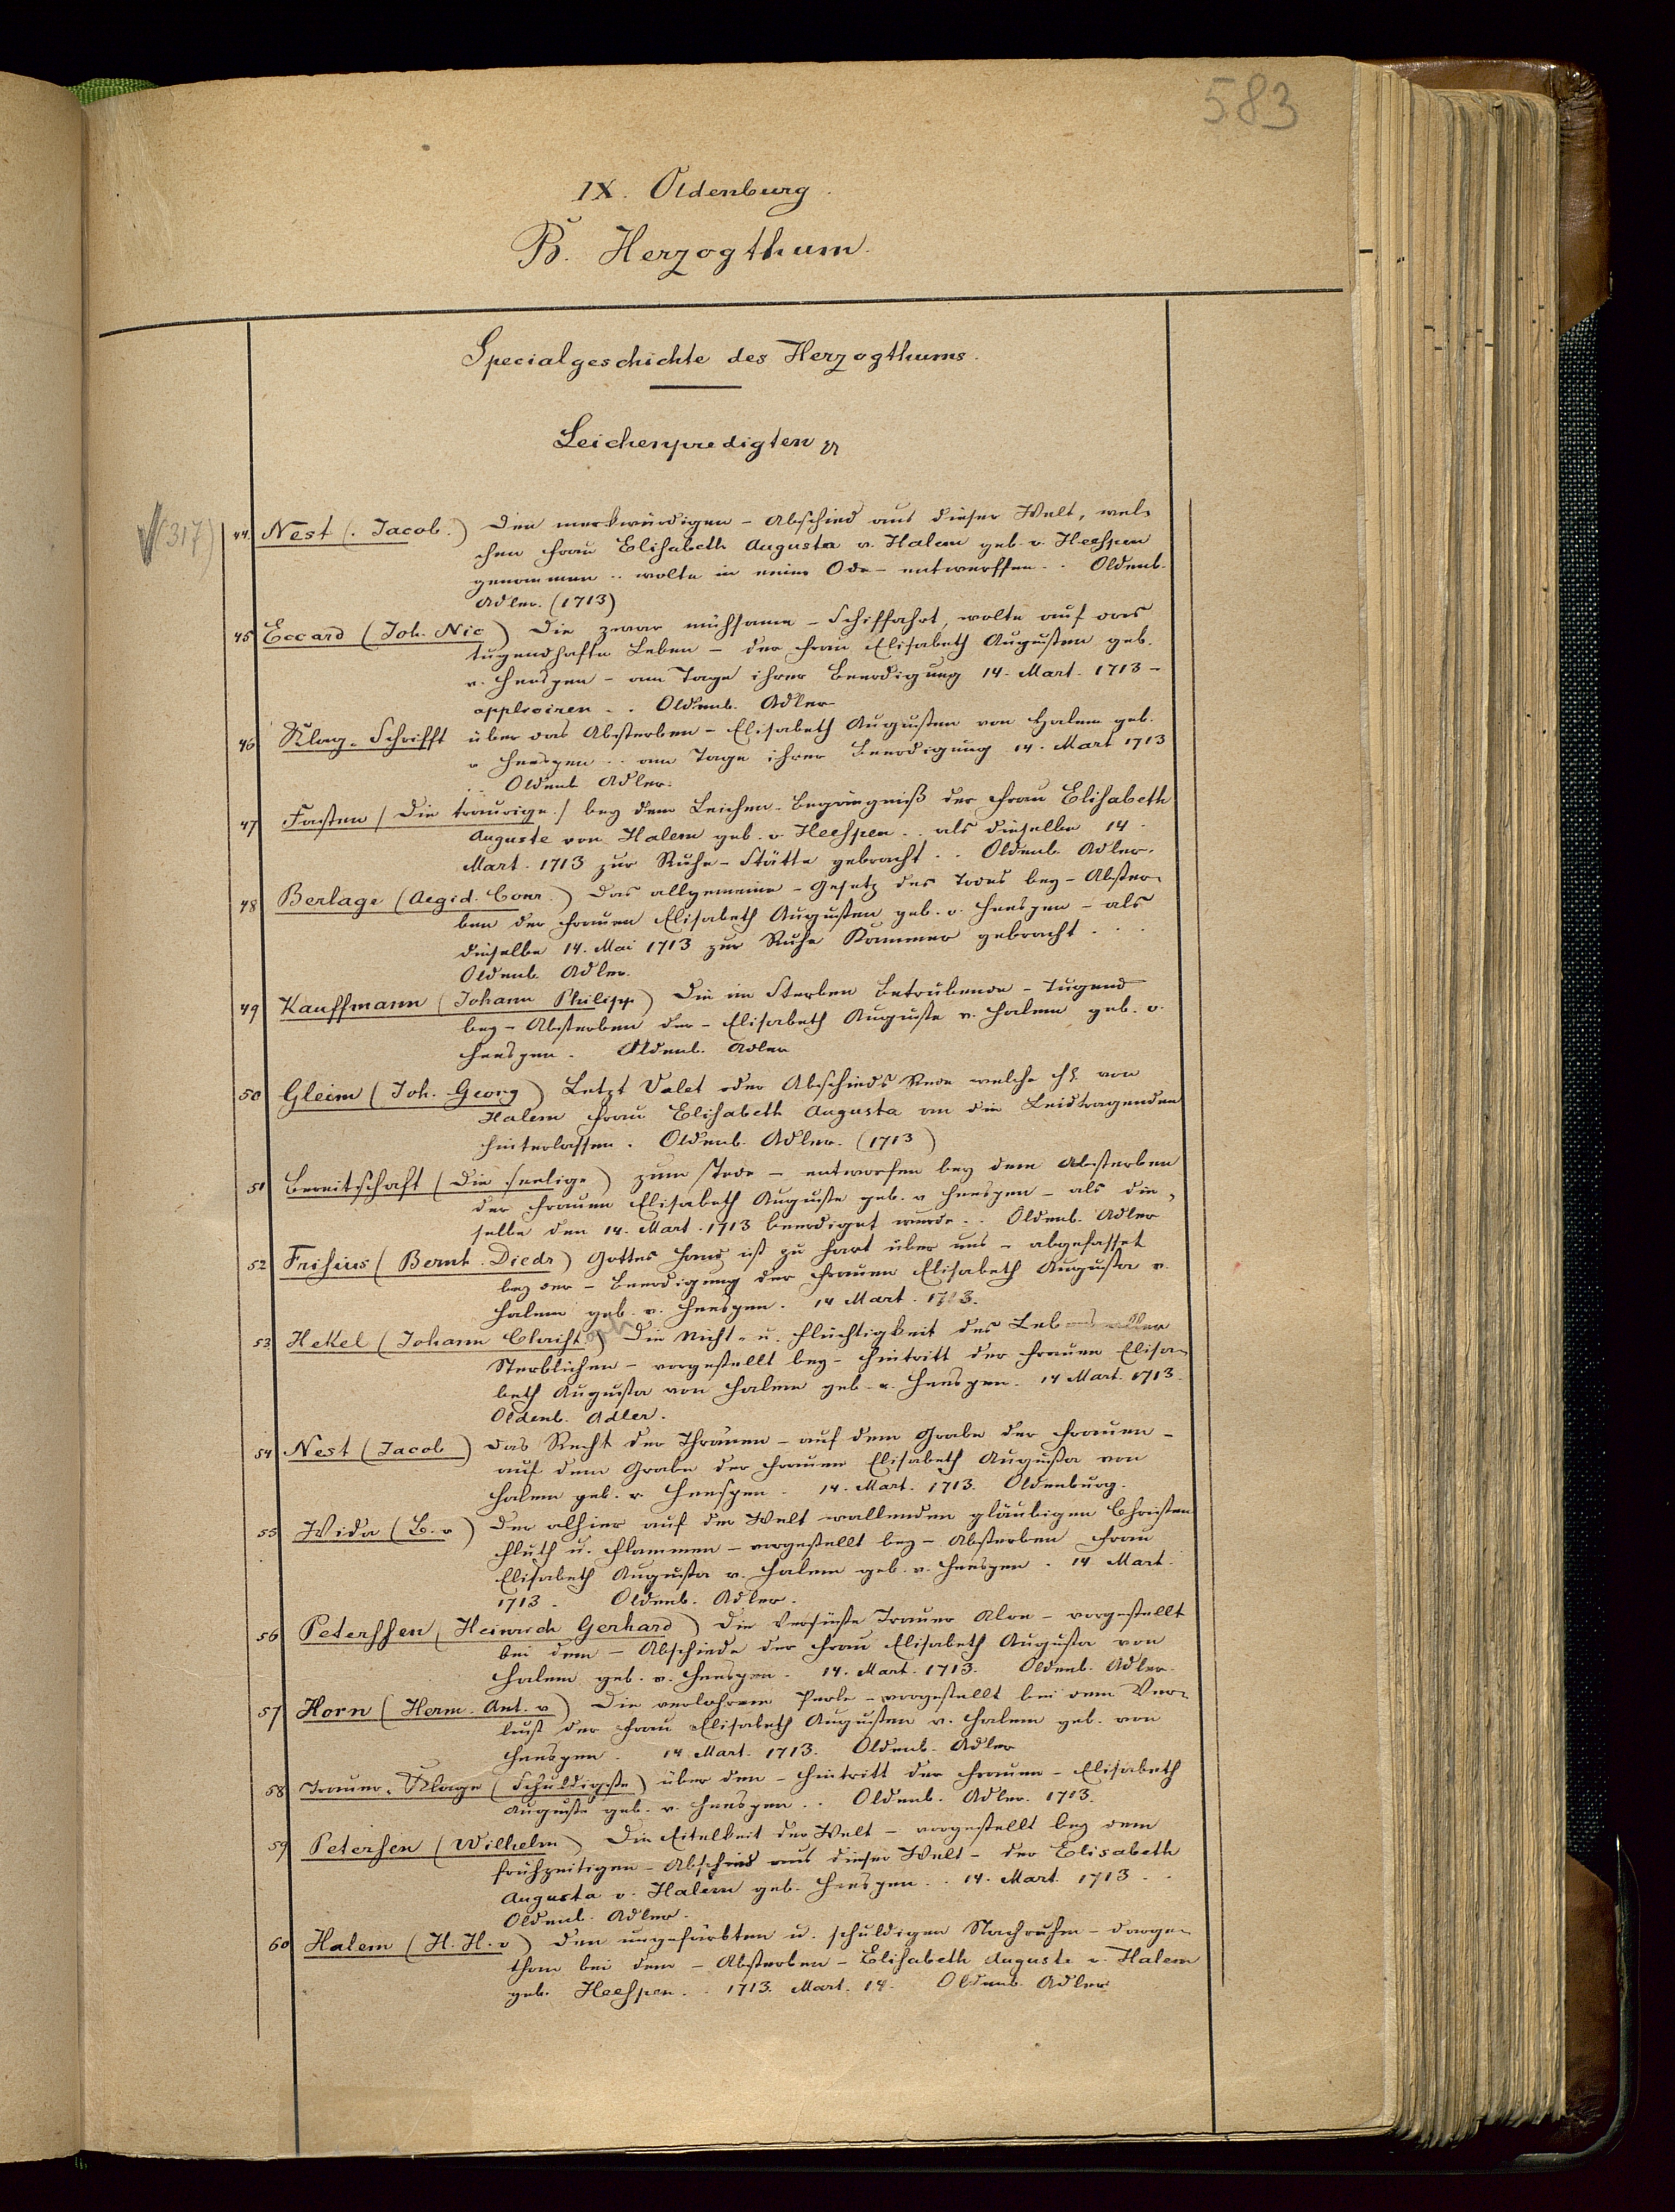 583
IX. Oldenburg.
B. Herzogthum.
Specialgeschichte des Herzogthums.
Leichenpredigten
(317)
44. Nest (Jacob.) Den merkwürdigen - Abschied aus dieser Welt, wel-
chen Frau Elisabeth Augusta v. Halem geb. v. Heespen
genommen .. wolte in einer Ode - entwerffen .. Oldenb.
Adler. (1713)
45 Eccard (Joh. Nic) Die zwar mühsame - Schiffahrt, wolte auf das
tugendhafte Leben - der Frau Elisabeth Augusten geb.
v. Heespen - am Tage ihrer Beerdigung 14. Mart. 1713 -
appliciren .. Oldenb. Adler
46 Klag-Schrifft über das Absterben - Elisabeth Augusten von Halem geb.
v Heespen .. am Tage ihrer Beerdigung 14. Mart 1713
.. Oldenb Adler.
47 Fasten (Die traurige.) bey dem Leichen-Begängniß der Frau Elisabeth
Auguste von Halem geb. v. Heespen .. als dieselbe 14.
Mart. 1713 zur Ruhe-Stätte gebracht .. Oldenb. Adler.
48 Berlage (Aegid. Conr.) Das allgemeine - Gesetz des Todes bey - Abster-
ben der Frauen Elisabeth Augusten geb. v. Heespen - als
dieselbe 14. Mai 1713 zur Ruhe Kammer gebracht ...
Oldenb. Adler.
49 Kauffmann (Johann Philipp) Die im Sterben Betrübende - Tugend
bey - Absterben der - Elisabeth Auguste v. Halem geb. v.
Heespen. Oldenb. Adler
50 Gleim (Joh. Georg) Letzt Valet oder Abschieds Rede welche von
Halem Frau Elisabeth Augusta an die Leidtragenden
hinterlassen. Oldenb. Adler. (1713)
51 Bereitschaft (Die seelige) zum Tode - entworfen bey dem Absterben
der Frauen Elisabeth Auguste geb. v Heespen - als die-
selbe den 14. Mart. 1713 beerdiget wurde .. Oldenb. Adler
52 Frisius (Bernh. Diedr) Gottes Hand ist zu hart über uns - abgefasset
bey der - Beerdigung der Frauen Elisabeth Augusta v.
Halem geb. v. Heespen. 14 Mart. 1713.
53. Hekel (Johann Christoph) Die Nicht- u. Flüchtigkeit des Lebens aller
Sterblichen - vorgestellt bey - Hintritt der Frauen Elisa-
beth Augusta von Halem geb. v. Heespen. 14 Mart. 1713.
Oldenb. Adler.
54 Nest (Jacob) Das Recht der Thränen - auf dem Grabe der Frauen -
auf dem Grabe der Frauen Elisabeth Augusta von
Halem geb. v. Heespen. 14. Mart. 1713. Oldenburg.
55 Wida (L. v) Der alhier auf der Welt wallenden gläubigen Christen
Fluth u. Flammen - vorgestellt bey - Absterben Frau
Elisabeth Augusta v. Halem geb. v. Heespen. 14. Mart.
1713. Oldenb. Adler.
56 Peterssen (Heinrich Gerhard) Die Versüste Trauer Aloe - vorgestellt
bei dem - Abschiede der Frau Elisabeth Augusta von
Halem geb. v. Heespen. 14. Mart. 1713. Oldenb. Adler
57 Horn (Herm. Ant. v) Die verlohrene Perle - vorgestellt bei dem Ver-
lust der Frau Elisabeth Augusten v. Halem geb. von
Heespen. 14. Mart. 1713. Oldenb. Adler
58 Trauer-Klage (Schuldigste) über den - Hintritt der Frauen - Elisabeth
Auguste geb. v. Heespen .. Oldenb. Adler. 1713.
59 Petersen (Wilhelm) Die Eitelkeit der Welt - vorgestellt bey dem
frühzeitigen - Abschied aus dieser Welt - der Elisabeth
Augusta v. Halem geb. Heespen .. 14. Mart. 1713 ..
Oldenb. Adler.
60 Halem (H. H. v) Den ungefärbten u. schuldigen Nachruhm - darge-
than bei dem - Absterben - Elisabeth Auguste v. Halem
geb. Heespen .. 1713. Mart. 14. Oldenb. Adler